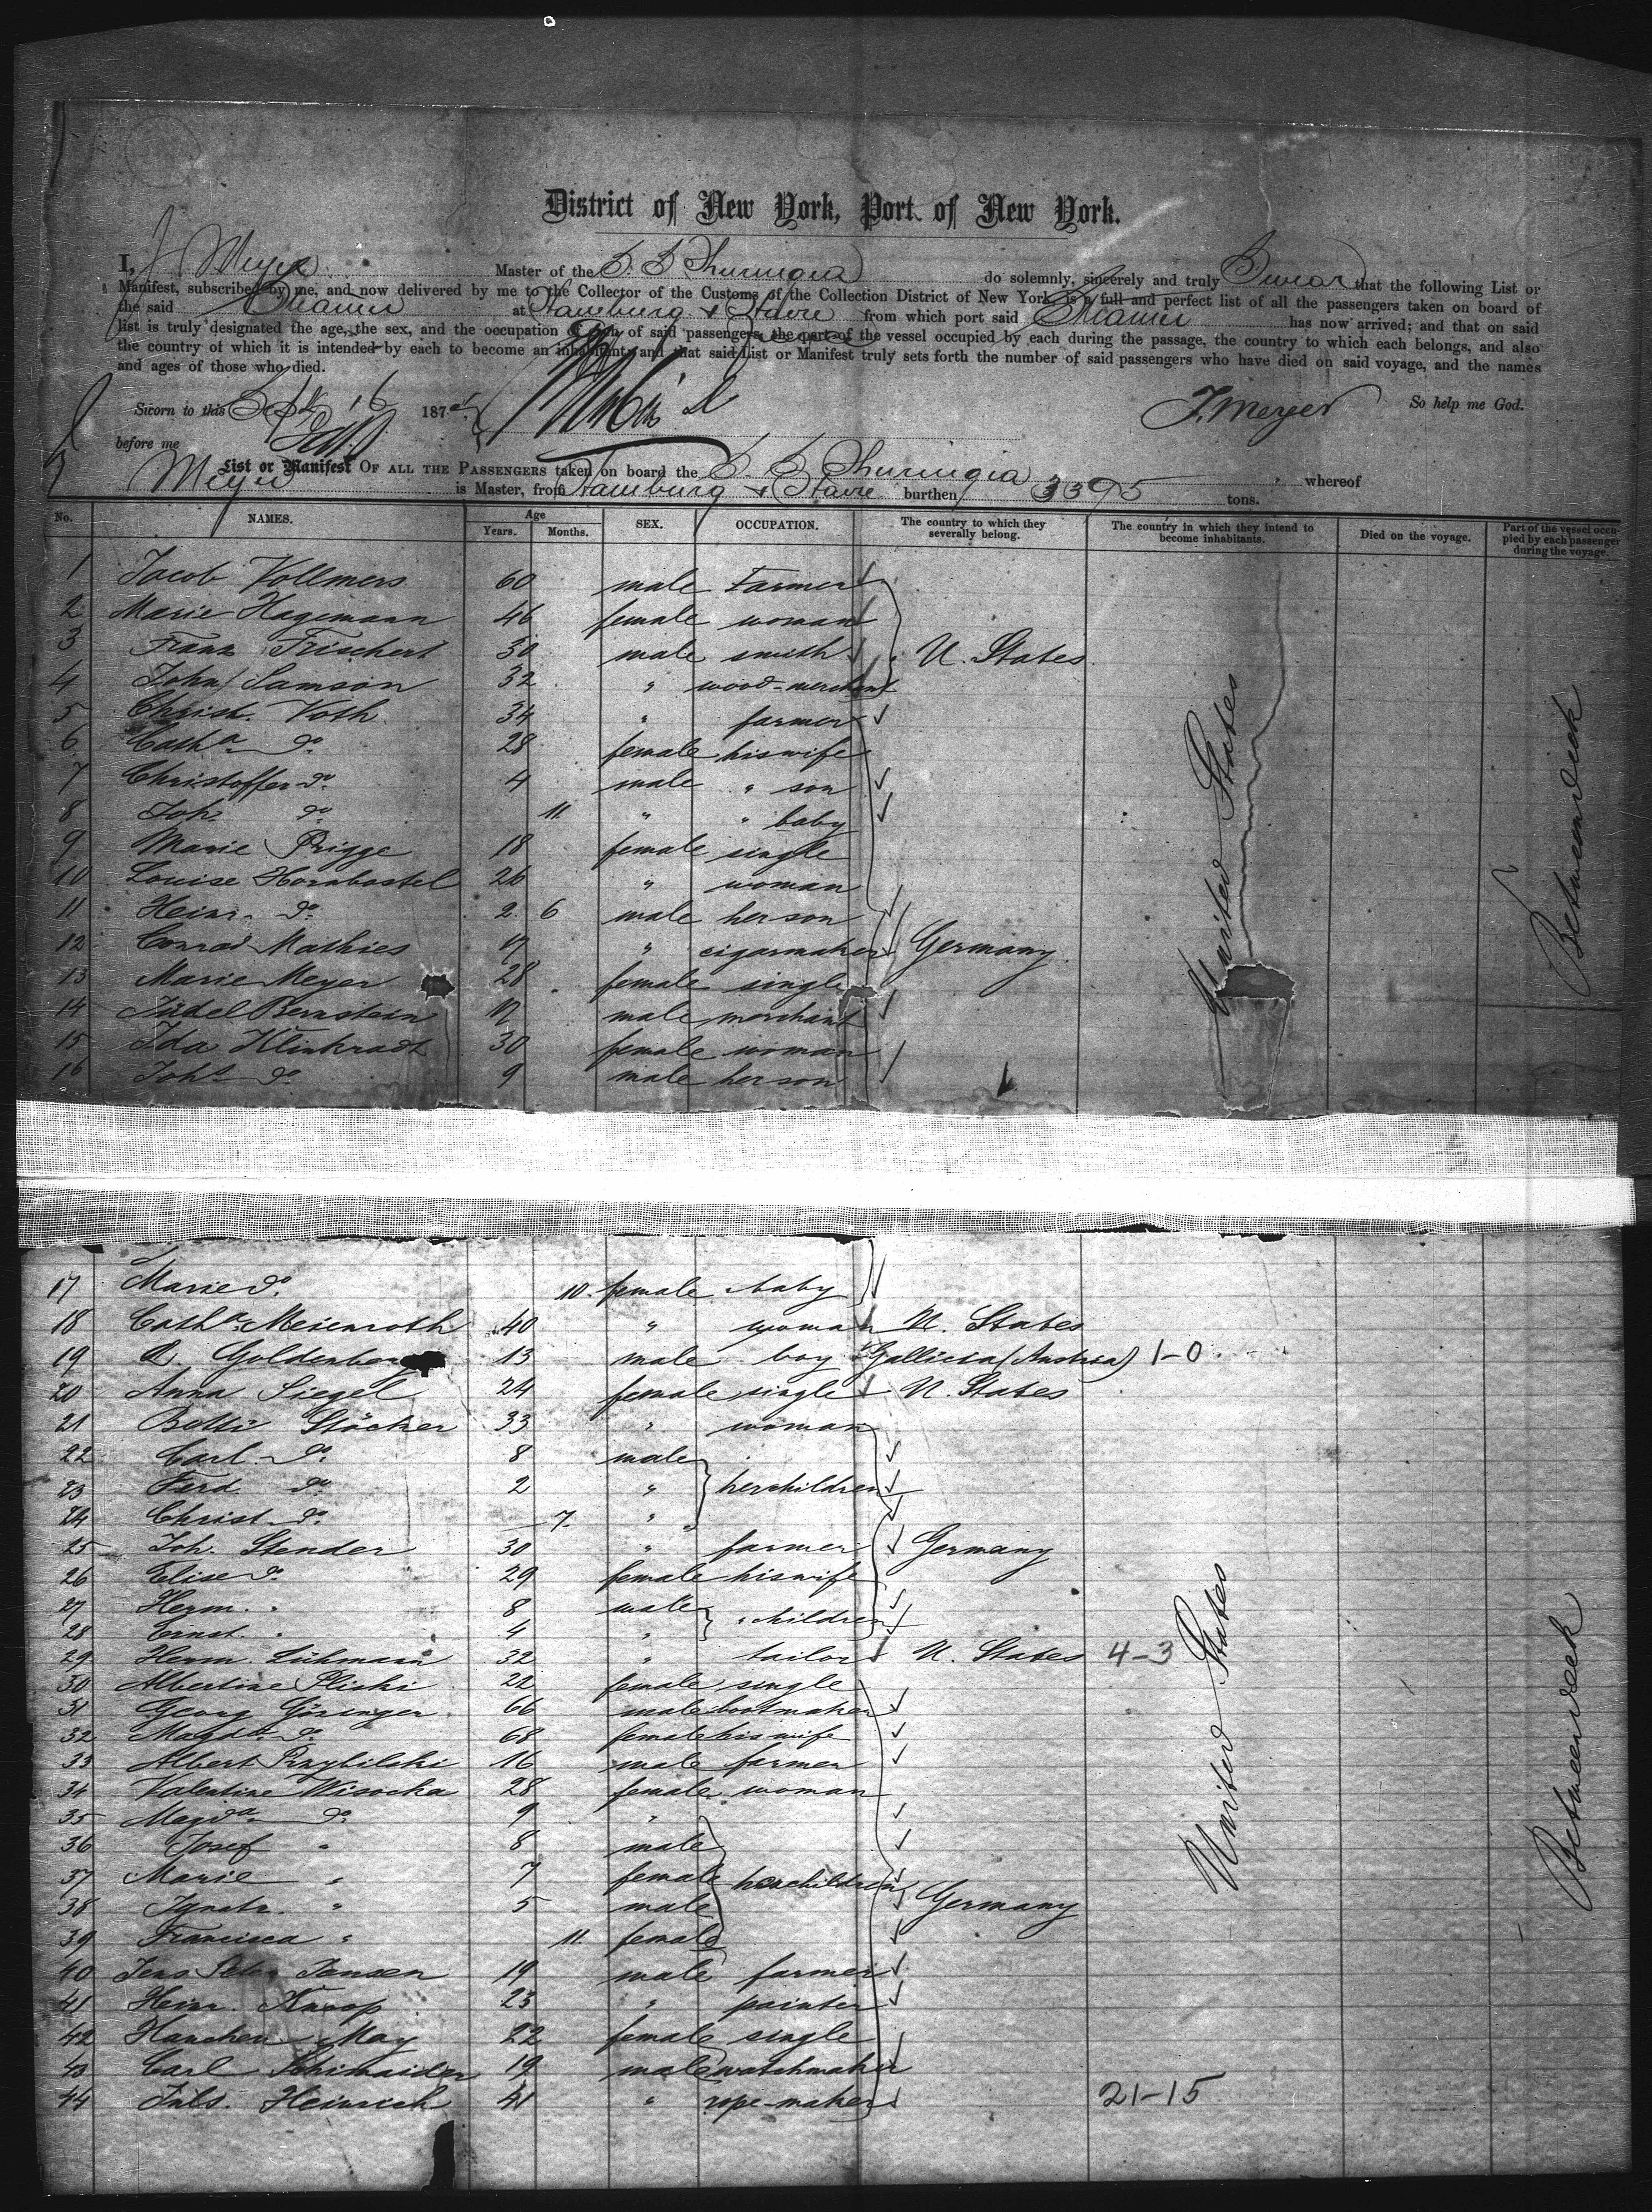 District of New York, Port of New York.
I, J Meyer Master of the S. S Thuringia do solemnly, sincerely and truly Swear that the following List or
Manifest, subscribed by me, and now delivered by me to the Collector of the Customs of the Collection District of New York, is a full and perfect list of all the passengers taken on board of
the said Steamer at Hamburg & Havre from which port said Steamer has now arrived; and that on said
list is truly designated the age, the sex, and the occupation of each of said passengers, the part of the vessel occupied by each during the passage, the country to which each belongs, and also
the country of which it is intended by each to become an inhabitant; and that said List or Manifest truly sets forth the number of said passengers who have died on said voyage, and the names
and ages of those who died.
Sworn to this Sept 16 187 J. Meyer So help me God.
before me
List or Manifest OF ALL THE PASSENGERS taken on board the S. S Thuringia whereof
Meyer is Master, from Hamburg & Havre burthen 3395 tons.
No. NAMES. Age Years. Months. SEX. OCCUPATION. The country to which they severally belong. The country in which they intend to become inhabitants. Died on the voyage. Part of the vessel occupied by each passenger during the voyage.
1 Jacob Vollmers 60 male Farmer
2 Marie Hagemann 46 female woman
3 Franz Frischert 30 male smith U. States
4 John Samson 32 " wood-merchant
5 Christ. Voth 34 " farmer
6 Catha do 28 female his wife
7 Christoffer do 4 male " son
8 Joh. do 11 " " baby
9 Marie Prigge 18 female single
10 Louise Hornbostel 26 " woman
11 Heinr. do 2 6 male her son
12 Conrad Mathies 17 " cigarmaker Germany
13 Marie Meyer 28 female single
14 Judel Bernstein 17 male merchant
15 Ida Klinkradt 30 female woman
16 Johs do 9 male her son
United States
Betweendeck
17 Marie do 10 female baby
18 Catha Meienroth 40 " woman U. States
19 A. Goldenberg 13 male boy Gallicia (Austria) 1-0
20 Anna Siegel 24 female single U. States
21 Betti Stöcker 33 " woman
22 Carl do 8 male
23 Ferd. do 2 " her children
24 Christ. do 7 "
25 Joh. Stender 30 " farmer Germany
26 Elise do 29 female his wife
27 Herm. " 8 male
28 Ernst. " 4 " " children
29 Herm. Lühmann 32 " tailor U. States 4-3
30 Albertine Pliski 22 female single
31 Georg Göringer 66 male bootmaker
32 Magda do 68 female his wife
33 Albert Przybilski 16 male farmer
34 Valentine Wisocka 28 female woman
35 Magda do 9 "
36 Josef " 8 male
37 Marie " 7 female her children
38 Ignatz " 5 male Germany
39 Francisca " 11 female
40 Jens Peter Jansen 19 male farmer
41 Heinr. Knoop 23 " painter
42 Hanchen May 22 female single
43 Carl Schimaider 19 male watchmaker
44 Juls. Heinrich 41 " rope-maker 21-15
United States
Betweendeck